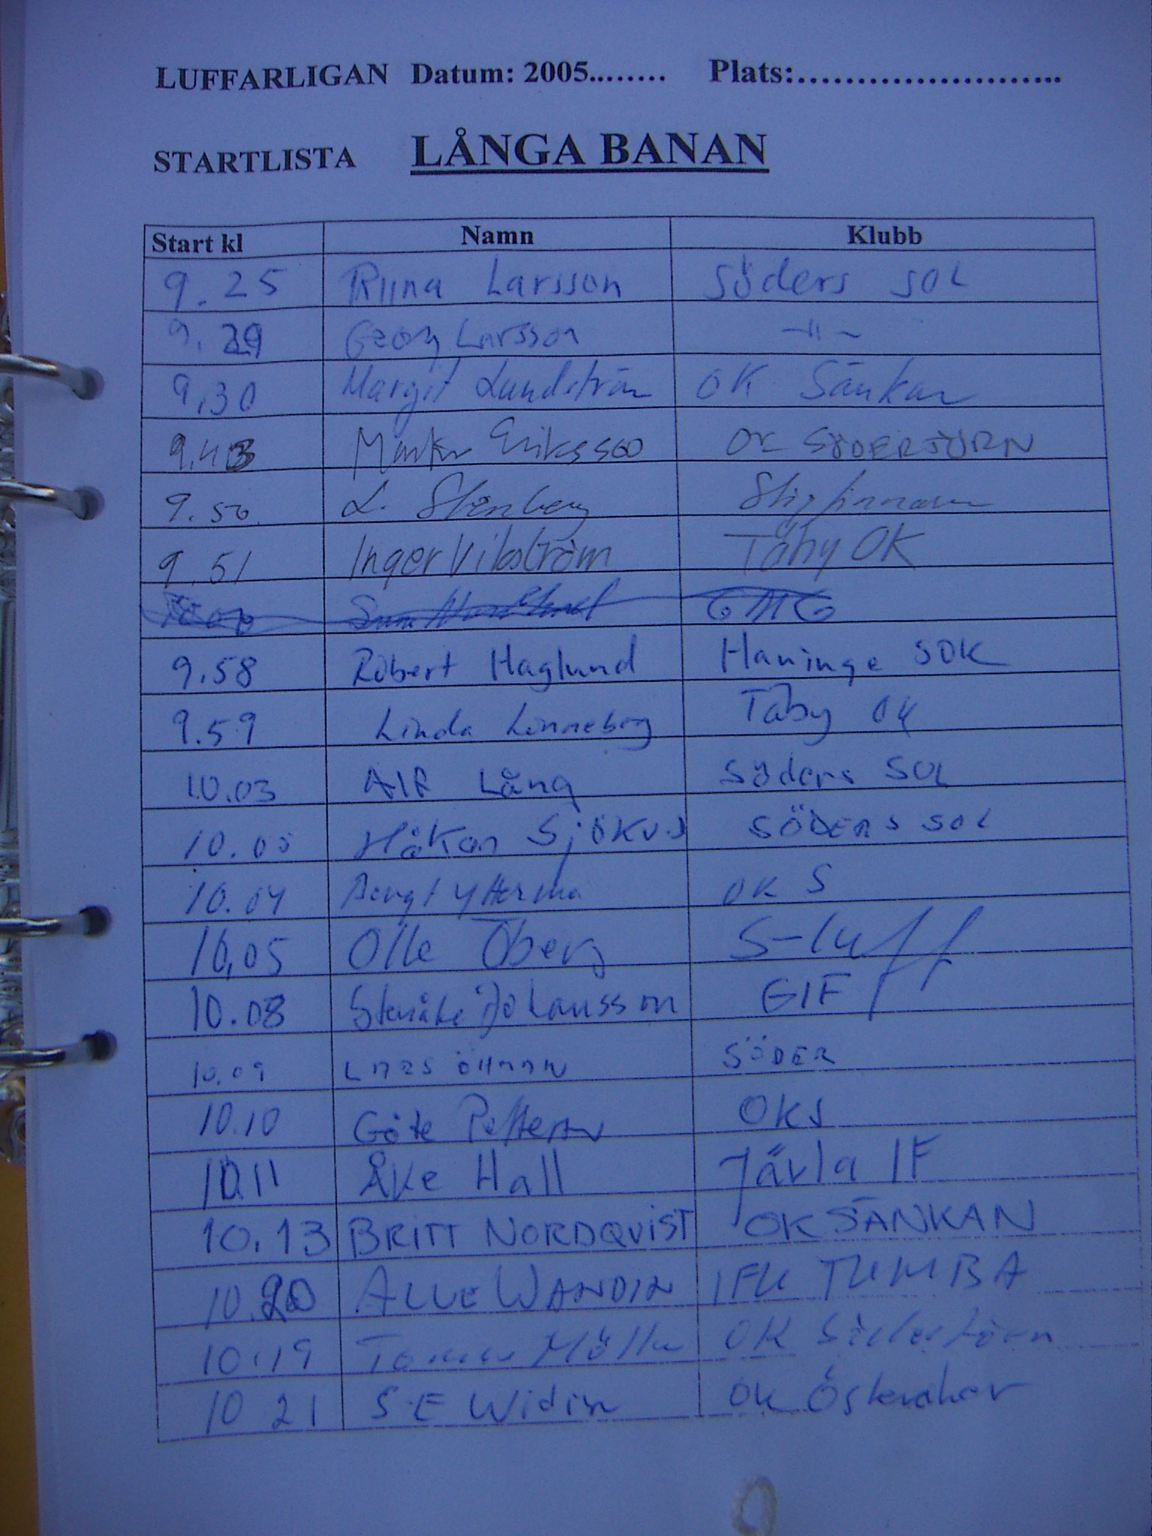 LUFFARLIGAN Datum: 2005........ Plats:........................
STARTLISTA LÅNGA BANAN
Start kl Namn Klubb
9.25 Riina Larsson Söders SOL
9.29 Georg Larsson -"-
9.30 Margit Lundström OK Sänkan
9.43 Eriksson OK SÖDERTÖRN
9.50 L. Stenberg Stigfinnarna
9.51 Inger Vikström Täby OK
GMG
9.58 Robert Haglund Haninge SOK
9.59 Linda Linneborg Täby OK
10.03 Alf Lång Söders SOL
10.05 Håkan Sjökvist SÖDERS SOL
10.04 Bengt OK S
10.05 Olle Öberg S-luff
10.08 Stenåke Johansson GIF
10.09 LARS ÖHMAN SÖDER
10.10 Göte Petterson OKS
10.11 Åke Hall Järla IF
10.13 BRITT NORDQVIST OK SÄNKAN
10.20 WANDIN IFK TUMBA
10.19 OK Södertörn
10 21 S-E Widin OK Österåker